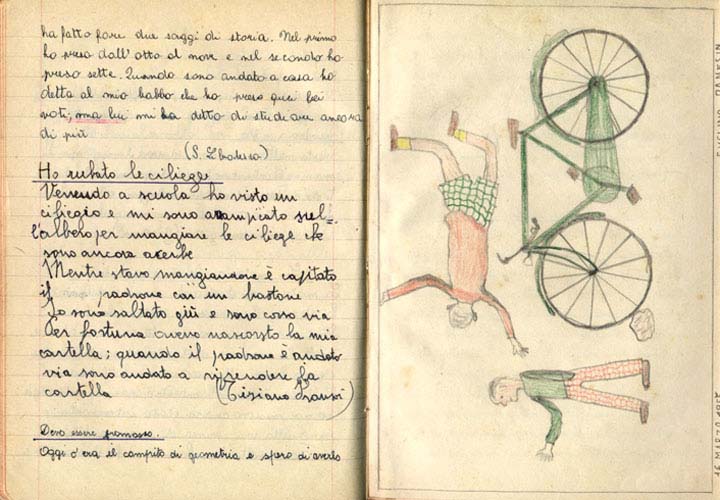 ha fatto fare due saggi di storia. Nel primo
ho preso dall'otto al nove e nel secondo ho
preso sette. Quando sono andato a casa ho
detto al mio babbo che ho preso quei bei
voti, ma lui mi ha detto di studiare ancora
di più
(S.
Ho rubato le ciliege
Venendo a scuola ho visto un
ciliegio e mi sono arampicato sul-
l'albero per mangiare le ciliege che
sono ancora acerbe
Mentre stavo mangiandone è capitato
il padrone con un bastone
Io sono saltato giù e sono corso via
Per fortuna avevo nascosto la mia
cartella; quando il padrone è andato
via sono andato a riprendere la
cartella (Tiziano
Devo essere promosso.
Oggi c'era il compito di geometria e spero di averlo
16 MARZO